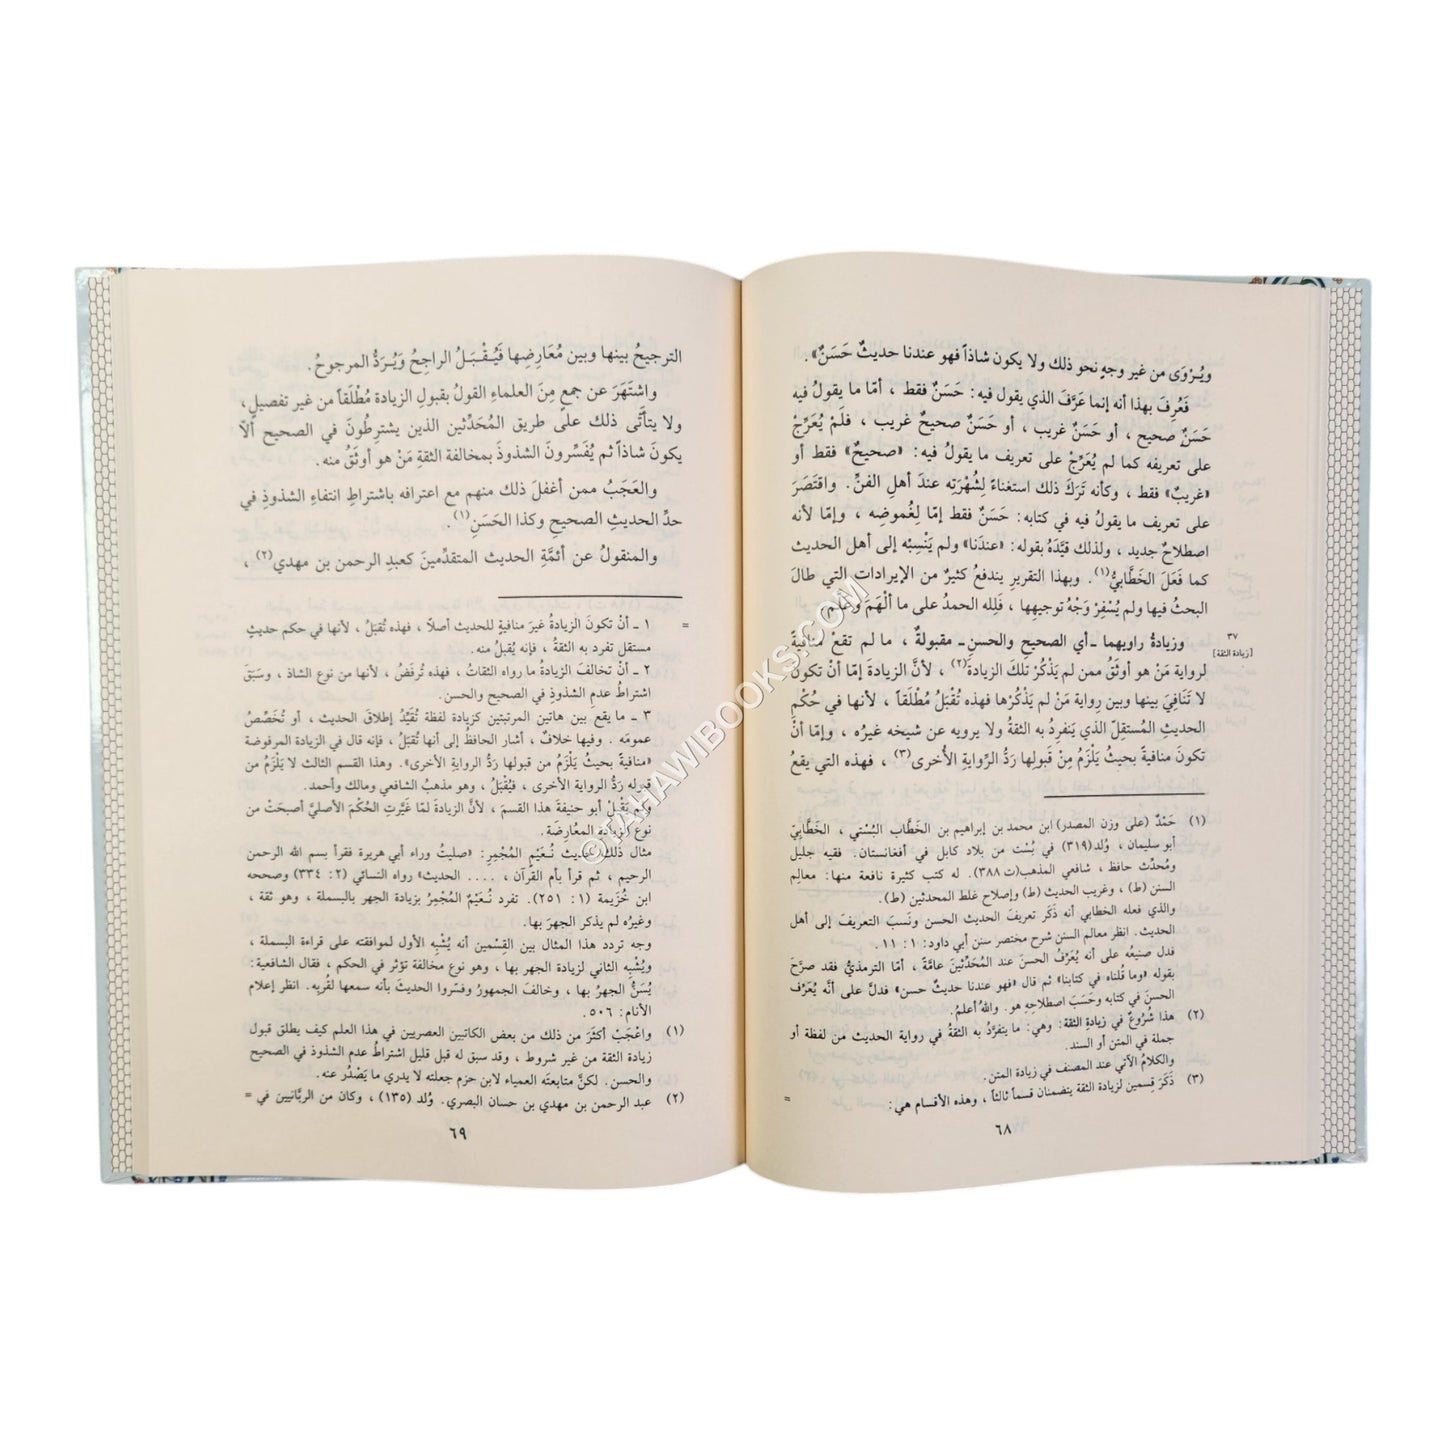 ويُرْوَى من غير وجهٍ نحو ذلك ولا يكون شاذاً فهو عندنا حديثٌ حَسَنٌ» .
فَعُرِفَ بهذا أنه إنما عَرَّفَ الذي يقول فيه: حَسَنٌ فقط ، أمّا ما يقولُ فيه
حَسَنٌ صحيح ، أو حَسَنٌ غريب ، أو حَسَنٌ صحيحٌ غريب ، فلَمْ يُعَرِّجْ
على تعريفه كما لم يُعَرِّجْ على تعريف ما يقولُ فيه: «صحيحٌ» فقط أو
«غريبٌ» فقط ، وكأنه تَرَكَ ذلك استغناءً لِشُهْرَتِه عندَ أهلِ الفنِّ . واقتَصَرَ
على تعريف ما يقولُ فيه في كتابه: حَسَنٌ فقط إمّا لِغُموضِه ، وإمّا لأنه
اصطلاحٌ جديد ، ولذلك قيَّدَهُ بقوله: «عندَنا» ولم يَنْسِبْه إلى أهل الحديث
كما فَعَلَ الخَطَّابيُّ(١) . وبهذا التقريرِ يندفعُ كثيرٌ من الإيرادات التي طالَ
البحثُ فيها ولم يُسْفِرْ وَجْهُ توجيهِها ، فَلِله الحمدُ على ما ألْهَمَ وعَلَّم.
وزيادةُ راويهما ـ أي الصحيحِ والحسنِ ـ مقبولةٌ ، ما لم تقعْ منافيةً
٣٧
[زيادة الثقة]
لرواية مَنْ هو أوثَقُ ممن لم يَذْكُرْ تلكَ الزيادة(٢) ، لأنَّ الزيادةَ إمّا أنْ تكون
لا تَنَافِيَ بينها وبين رواية مَنْ لم يَذْكُرْها فهذه تُقْبَلُ مُطْلَقاً ، لأنها في حُكْمِ
الحديثِ المُستقِلّ الذي يَنفرِدُ به الثقةُ ولا يرويه عن شيخه غيرُه ، وإمّا أنْ
تكونَ منافيةً بحيثُ يَلْزَمُ مِنْ قَبولِها رَدُّ الرِّوايةِ الأُخرى(٣) ، فهذه التي يقعُ
(١) حَمْدٌ (على وزن المصدر) ابن محمد بن إبراهيم بن الخَطَّاب البُسْتي ، الخَطَّابِيّ
أبو سليمان ، وُلد(٣١٩) في بُسْت من بلاد كابل في أفغانستان. فقيه جليل
ومُحدِّث حافظ ، شافعي المذهب(ت ٣٨٨). له كتب كثيرة نافعة منها: معالم
السنن (ط) ، وغريب الحديث (ط) وإصلاح غلط المحدثين (ط).
والذي فعله الخطابي أنه ذَكَر تعريفَ الحديث الحسن ونَسبَ التعريفَ إلى أهل
الحديث. انظر معالم السنن شرح مختصر سنن أبي داود: ١ : ١١ .
فدل صنيعُه على أنه يُعَرِّفُ الحسنَ عند المُحَدِّثينَ عامَّةً ، أمّا الترمذيُّ فقد صرَّحَ
بقوله «وما قُلناه في كتابنا» ثم قال «فهو عندنا حديثٌ حسن» فدلَّ على أنَّه يُعَرِّف
الحسنَ في كتابه وحَسَبَ اصطلاحِهِ هو. واللهُ أعلمُ.
(٢) هذا شُروعٌ في زيادةِ الثقة: وهي: ما يتفرَّدُ به الثقةُ في رواية الحديث من لفظة أو
جملة في المتن أو السند.
والكلامُ الآتي عند المصنف في زيادة المتن.
(٣) ذَكَرَ قِسمين لزيادة الثقة يتضمنان قسماً ثالثاً ، وهذه الأقسام هي: =
٦٨
الترجيحُ بينها وبين مُعَارِضِها فَيُقْبَلُ الراجِحُ وَيُرَدُّ المرجوحُ.
واشتَهَرَ عن جمعٍ مِنَ العلماءِ القولُ بقبولِ الزيادة مُطْلَقاً من غير تفصيلٍ ،
ولا يتأتَّى ذلك على طريق المُحَدِّثين الذين يشترِطُونَ في الصحيح ألاّ
يكونَ شاذاً ثم يُفَسِّرون الشذوذَ بمخالفة الثقةِ مَنْ هو أوثَقُ منه.
والعَجَبُ ممن أغفلَ ذلك منهم مع اعترافه باشتراطِ انتفاءِ الشذوذِ في
حدِّ الحديثِ الصحيحِ وكذا الحَسَنِ(١).
والمنقولُ عن أئمَّةِ الحديث المتقدِّمينَ كعبدِ الرحمن بن مهدي(٢) ،
= ١ ـ أنْ تكونَ الزيادةُ غيرَ منافيةٍ للحديث أصلاً ، فهذه تُقبَلُ ، لأنها في حكم حديثٍ
مستقل تفرد به الثقةُ ، فإنه يُقبلُ منه.
٢ ـ أنْ تخالفَ الزيادةُ ما رواه الثقاتُ ، فهذه تُرفَضُ ، لأنها من نوع الشاذ ، وسَبَقَ
اشتراطُ عدمِ الشذوذِ في الصحيح والحسن.
٣ ـ ما يقع بين هاتين المرتبتين كزيادة لفظة تُقَيِّدُ إطلاقَ الحديث ، أو تُخَصِّصُ
عمومَه . وفيها خلافٌ ، أشار الحافظُ إلى أنها تُقبَلُ ، فإنه قال في الزيادة المرفوضة
«منافيةً بحيثُ يَلْزَمُ من قبولها رَدُّ الروايةِ الأخرى». وهذا القسم الثالث لا يَلْزَمُ من
قبوله رَدُّ الرواية الأخرى ، فيُقْبَلُ ، وهو مذهبُ الشافعي ومالك وأحمد.
ولم يَقْبَلْ أبو حنيفةَ هذا القسمَ ، لأنَّ الزيادةَ لمّا غَيَّرتِ الحُكْمَ الأصليَّ أصبحَتْ من
نوع الزيادة المعُارِضَة.
مثال ذلك حديث نُعَيْمٍ المُجْمِرِ: «صليتُ وراء أبي هريرة فقرأ بسم الله الرحمن
الرحيم ، ثم قرأ بأم القرآن ، .... الحديث» رواه النسائي (٢ : ٣٣٤) وصححه
ابن خُزَيمة (١ : ٢٥١). تفرد نُعَيْمٌ المُجْمِرُ بزيادة الجهر بالبسملة ، وهو ثقة ،
وغيرُه لم يذكر الجهرَ بها.
وجه تردد هذا المثال بين القِسْمين أنه يُشْبِه الأول لموافقته على قراءة البسملة ،
ويُشْبِه الثاني لزيادة الجهر بها ، وهو نوع مخالفة تؤثر في الحكم ، فقال الشافعية:
يُسَنُّ الجهرُ بها ، وخالفَ الجمهورُ وفسَّروا الحديثَ بأنه سمعها لقُربه. انظر إعلام
الأنام: ٥٠٦.
(١) واعْجَبْ أكثرَ من ذلك من بعض الكاتبين العصريين في هذا العلم كيف يطلق قبول
زيادة الثقة من غير شروط ، وقد سبق له قبل قليل اشتراطُ عدم الشذوذ في الصحيح
والحسن. لكنَّ متابعتَه العمياء لابن حزم جعلته لا يدري ما يَصْدُر عنه.
(٢) عبد الرحمن بن مهدي بن حسان البصري. وُلد (١٣٥) ، وكان من الربَّانيين في =
٦٩
©TAHAWIBOOKS.COM